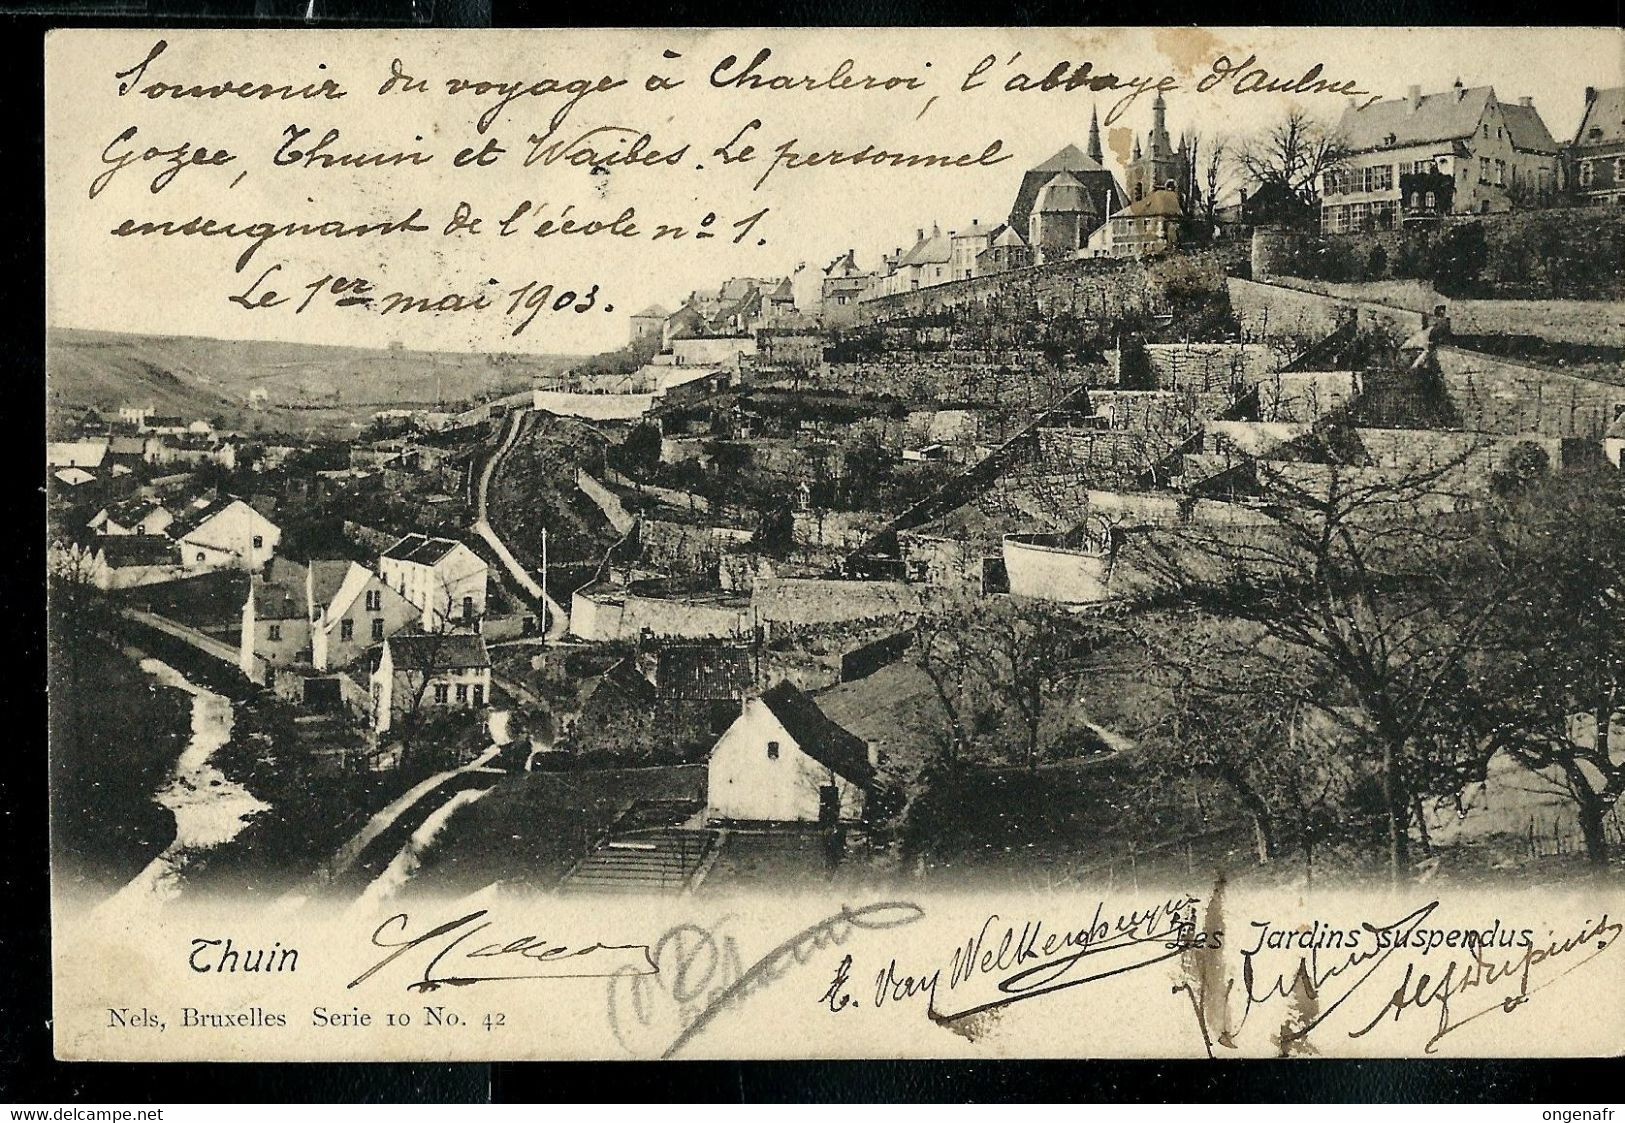 Souvenir du voyage à Charleroi, l'abbaye d'Aulne,
Gozee, Thuin et Waibes. Le personnel
enseignant de l'école nº 1.
Le 1er mai 1903.
Thuin
E. Van Welkerhuyzen
Les Jardins suspendus
Alf Dupuis
Nels, Bruxelles Serie 10 No. 42
www.delcampe.net
ongenafr